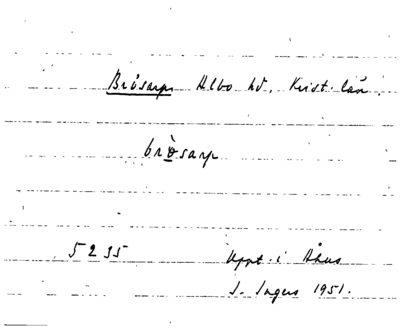 Brösarps Albo hd. Krist. län.
bròsarp
5235 Uppt. i Åhus
I. Ingers 1951.